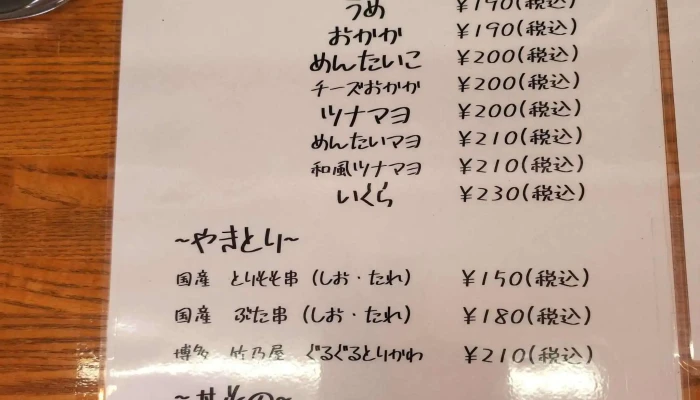 うめ ¥190(税込)
おかか ¥190(税込)
めんたいこ ¥200(税込)
チーズおかか ¥200(税込)
ツナマヨ ¥200(税込)
めんたいマヨ ¥210(税込)
和風ツナマヨ ¥210(税込)
いくら ¥230(税込)
~やきとり~
国産 とりもも串 (しお・たれ) ¥150(税込)
国産 ぶた串 (しお・たれ) ¥180(税込)
博多 竹乃屋 ぐるぐるとりかわ ¥210(税込)
~丼もの~